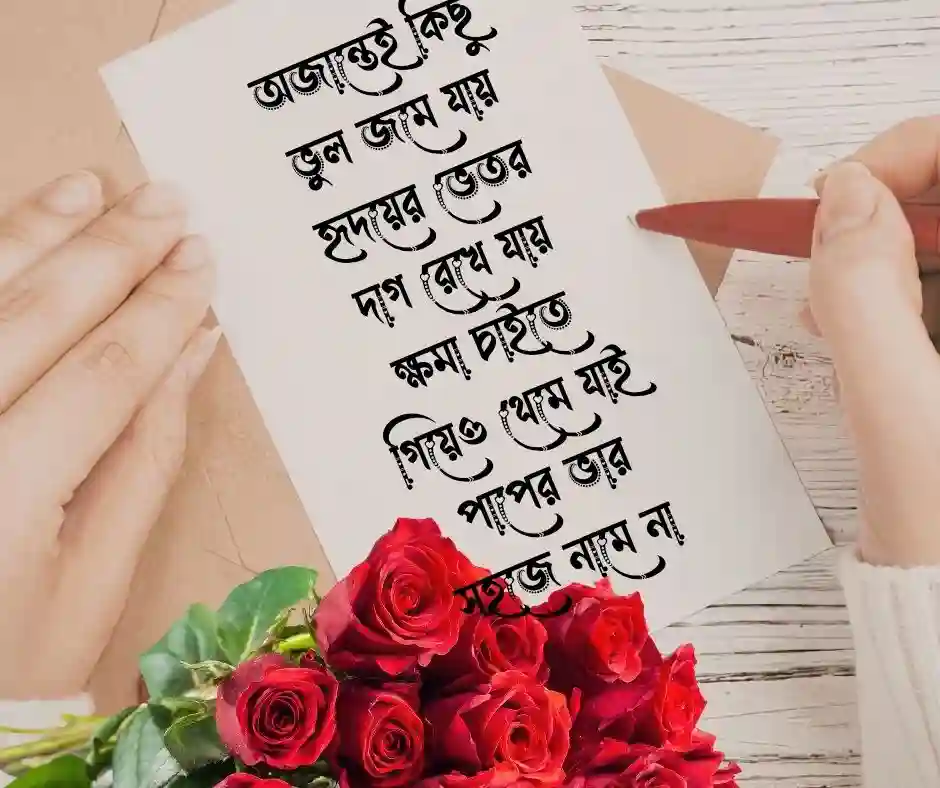 অজান্তেই কিছু
ভুল জমে যায়
হৃদয়ের ভেতর
দাগ রেখে যায়
ক্ষমা চাইতে
গিয়েও থেমে যাই
পাপের ভার
সহজে নামে না